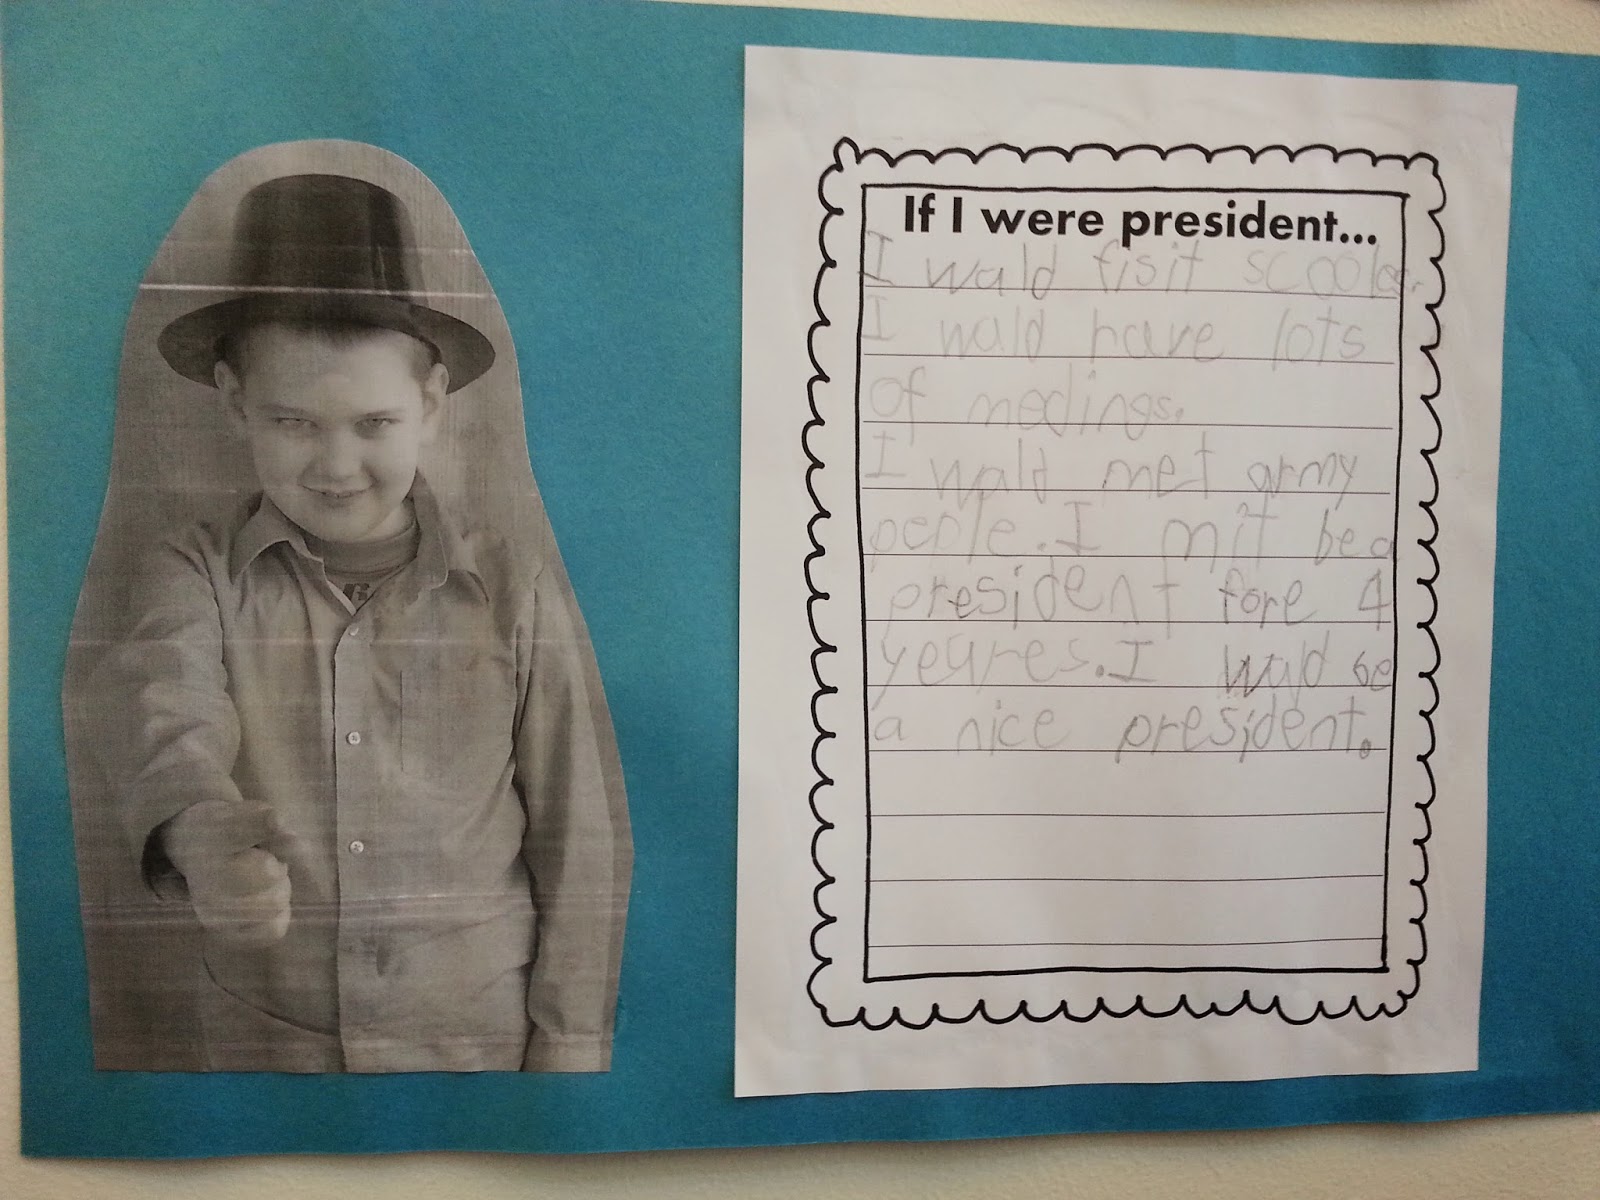 If I were president...
I wald fisit scooles.
I wald have lots
of medings.
I wald met army
peple. I mit be a
president fore 4
yeares. I wald be
a nice president.